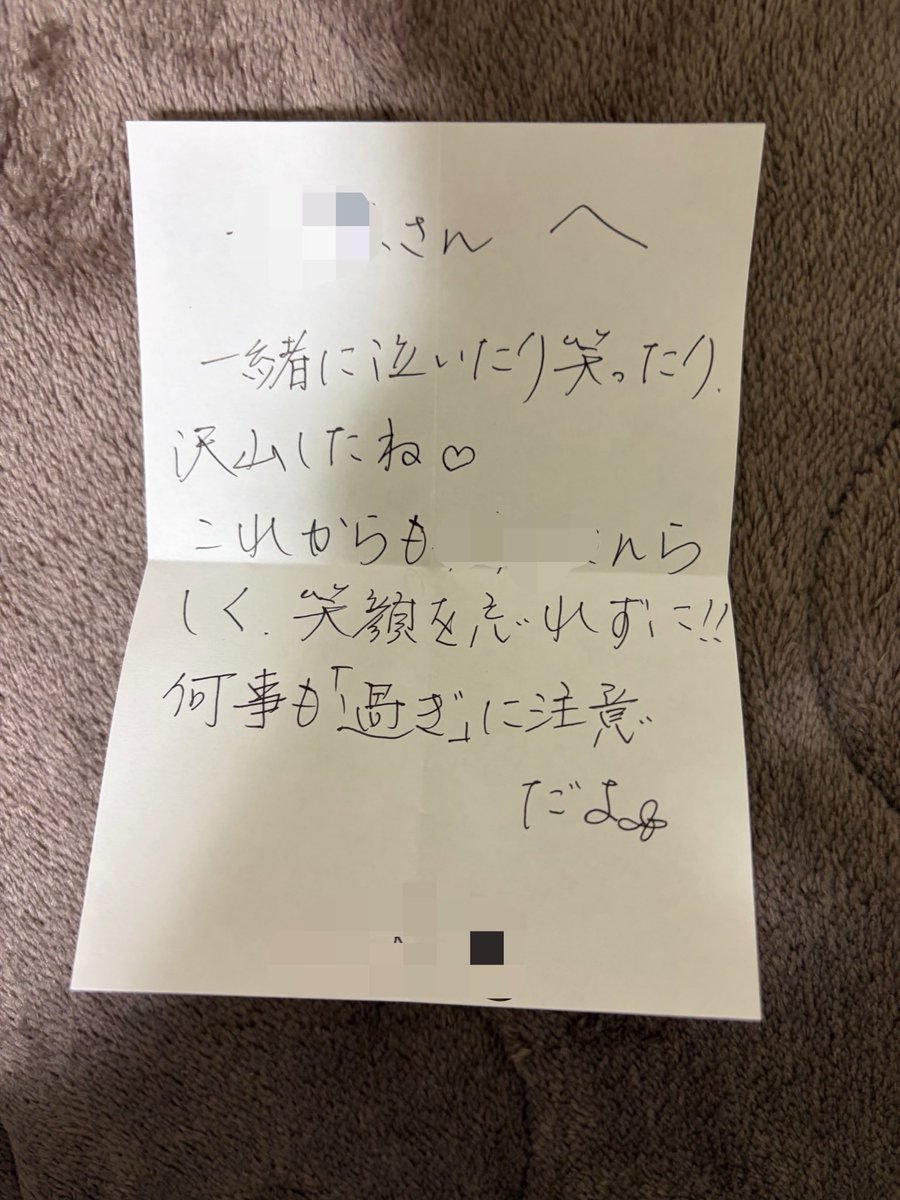 さん へ
一緒に泣いたり笑ったり、
沢山したね♡
これからも んら
しく、笑顔を忘れずに!!
何事も「過ぎ」に注意
だよ